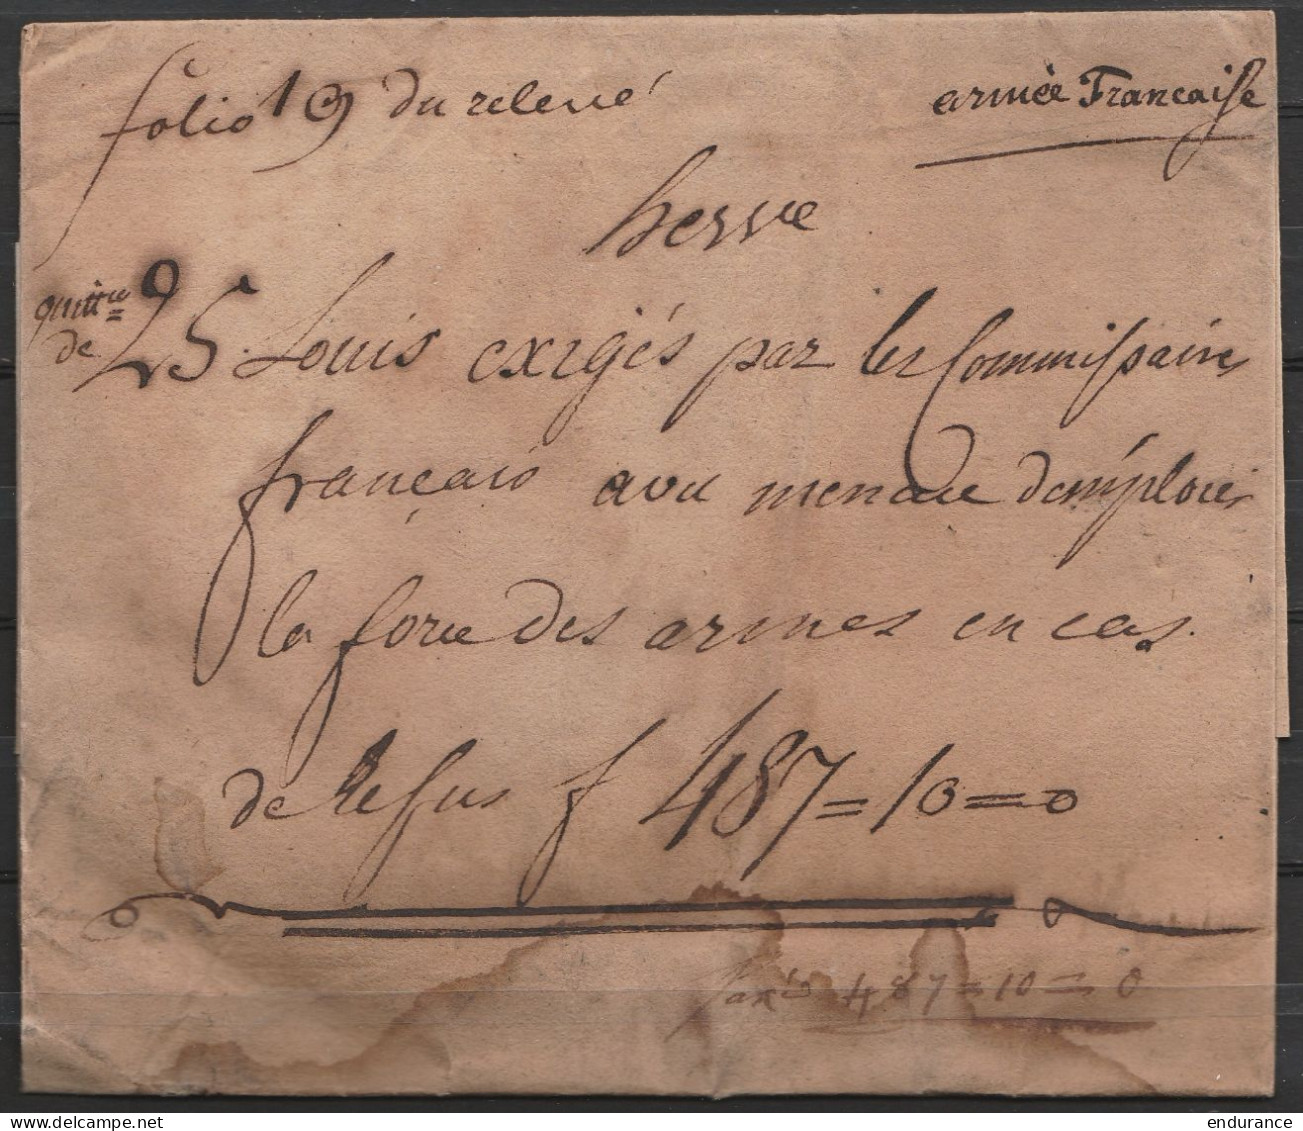 folio 19 du relevé
armée Francaise
herve
quittce
de 25 Louis exigés par les Commissaires
français avec menace demploier
la force des armes en cas
de Refus f 487=10=0
487=10=0
endurance
delcampe.net